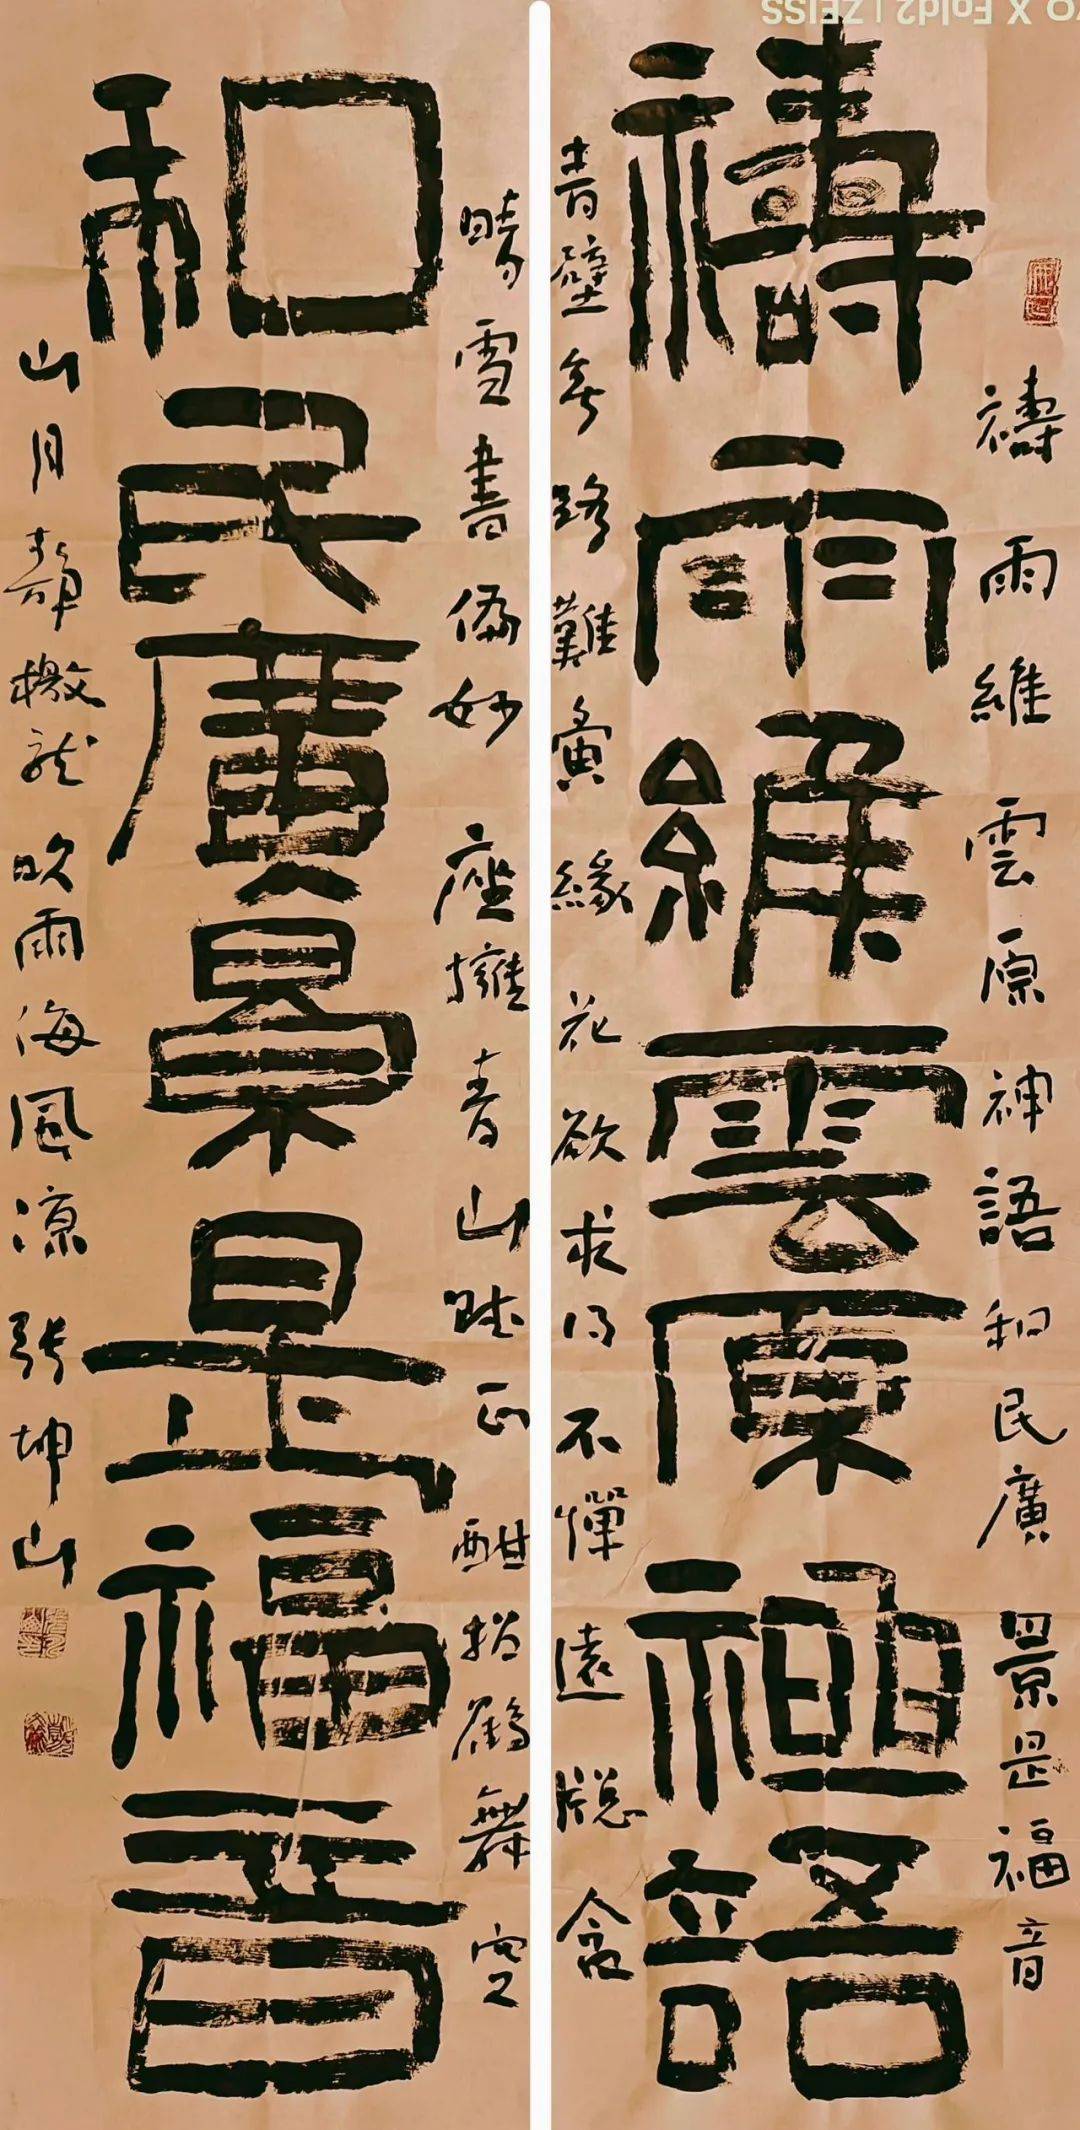 X Fold2 | ZEISS
禱雨維雲原神語和民廣景是福音
禱雨維雲原神語
青壁無路難夤緣花欲求得不憚遠牕含
晴雪書偏妙座擁青山賦正酣招鶴舞空
和民廣景是福音
山月靜檄龍吹雨海風涼張坤山